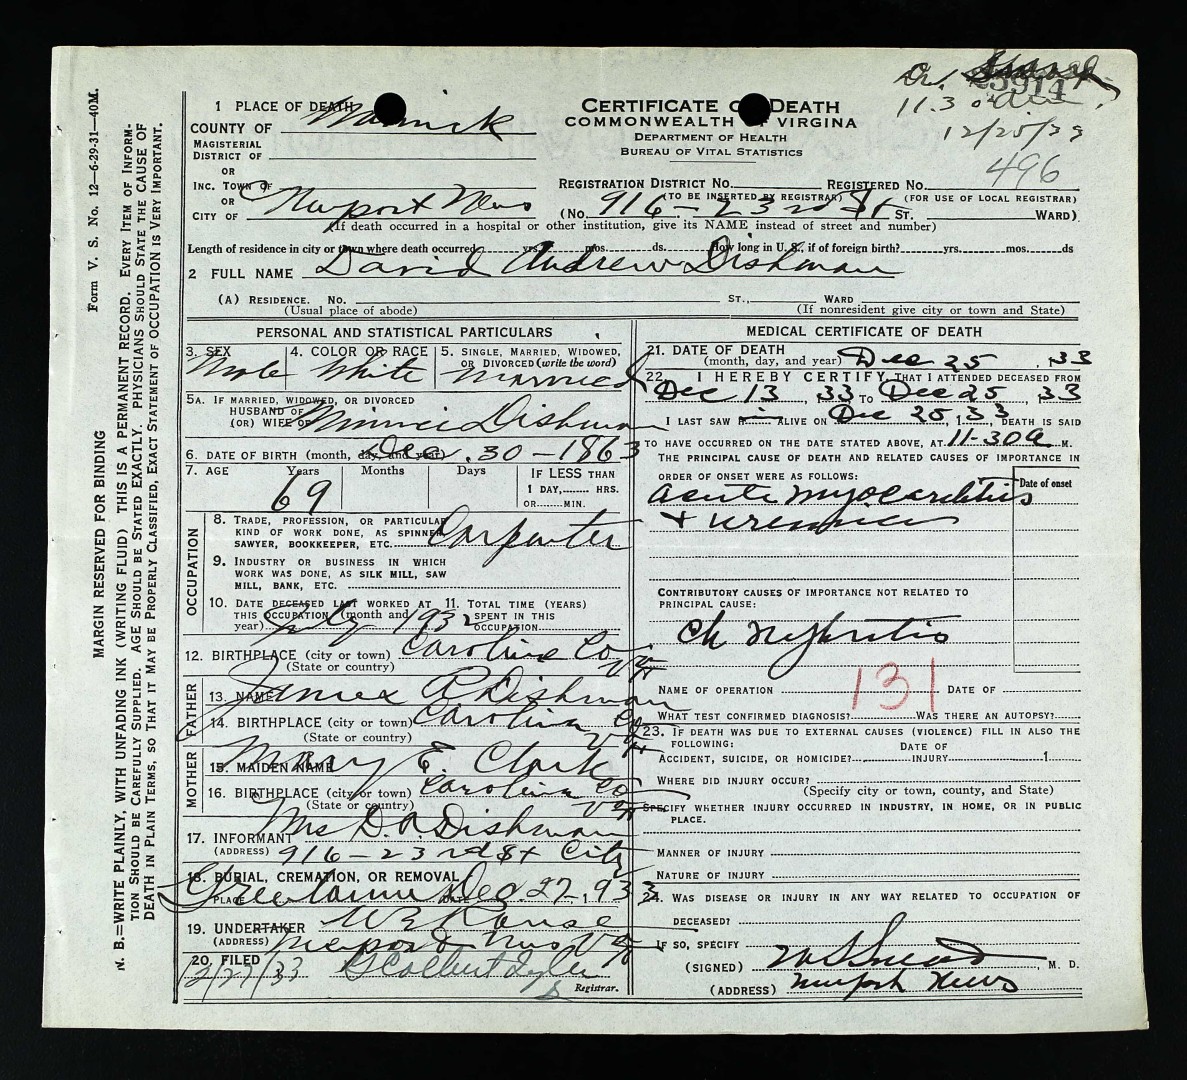 Form V. S. No. 12—6-29-31—40M.
MARGIN RESERVED FOR BINDING
N. B.—WRITE PLAINLY, WITH UNFADING INK (WRITING FLUID) THIS IS A PERMANENT RECORD. EVERY ITEM OF INFORM-
TION SHOULD BE CAREFULLY SUPPLIED. AGE SHOULD BE STATED EXACTLY. PHYSICIANS SHOULD STATE THE CAUSE OF
DEATH IN PLAIN TERMS, SO THAT IT MAY BE PROPERLY CLASSIFIED, EXACT STATEMENT OF OCCUPATION IS VERY IMPORTANT.
Dr.
25914
11.30
12/25/33
496
1 PLACE OF DEATH
COUNTY OF Warwick
MAGISTERIAL
DISTRICT OF
OR
INC. TOWN OF
OR
CITY OF Newport News
CERTIFICATE OF DEATH
COMMONWEALTH OF VIRGINIA
DEPARTMENT OF HEALTH
BUREAU OF VITAL STATISTICS
REGISTRATION DISTRICT NO. REGISTERED NO.
(TO BE INSERTED BY REGISTRAR) (FOR USE OF LOCAL REGISTRAR)
(No. 916-23rd St ST. WARD)
(If death occurred in a hospital or other institution, give its NAME instead of street and number)
Length of residence in city or town where death occurred yrs. mos. ds. How long in U. S., if of foreign birth? yrs. mos. ds
2 FULL NAME David Andrew Dishman
(A) RESIDENCE. No. ST., WARD
(Usual place of abode) (If nonresident give city or town and State)
PERSONAL AND STATISTICAL PARTICULARS
3. SEX Male
4. COLOR OR RACE White
5. SINGLE, MARRIED, WIDOWED,
OR DIVORCED (write the word)
Married
5A. IF MARRIED, WIDOWED, OR DIVORCED
HUSBAND OF
(OR) WIFE OF Minnie Dishman
6. DATE OF BIRTH (month, day, and year) Dec. 30-1863
7. AGE Years Months Days IF LESS THAN
1 DAY, HRS.
OR MIN.
69
OCCUPATION
8. TRADE, PROFESSION, OR PARTICULAR
KIND OF WORK DONE, AS SPINNER,
SAWYER, BOOKKEEPER, ETC. Carpenter
9. INDUSTRY OR BUSINESS IN WHICH
WORK WAS DONE, AS SILK MILL, SAW
MILL, BANK, ETC.
10. DATE DECEASED LAST WORKED AT
THIS OCCUPATION (month and
year) July 1932
11. TOTAL TIME (YEARS)
SPENT IN THIS
OCCUPATION
12. BIRTHPLACE (city or town) Caroline Co
(State or country) Va
FATHER
13. NAME James A Dishman
14. BIRTHPLACE (city or town) Caroline Co
(State or country) Va
MOTHER
15. MAIDEN NAME Mary E. Clark
16. BIRTHPLACE (city or town) Caroline Co
(State or country) Va
17. INFORMANT Mrs D. A. Dishman
(ADDRESS) 916-23rd St City
18. BURIAL, CREMATION, OR REMOVAL
PLACE Greenlawn DATE Dec. 27-1933
19. UNDERTAKER W E Rouse
(ADDRESS) Newport News Va
20. FILED 12/27/33
Registrar.
MEDICAL CERTIFICATE OF DEATH
21. DATE OF DEATH
(month, day, and year) Dec 25, 33
22. I HEREBY CERTIFY, THAT I ATTENDED DECEASED FROM
Dec 13, 33 TO Dec 25, 33
I LAST SAW H im ALIVE ON Dec 25, 33 DEATH IS SAID
TO HAVE OCCURRED ON THE DATE STATED ABOVE, AT 11-30a M.
THE PRINCIPAL CAUSE OF DEATH AND RELATED CAUSES OF IMPORTANCE IN
ORDER OF ONSET WERE AS FOLLOWS:
Date of onset
Acute myocarditis
+ uremia
CONTRIBUTORY CAUSES OF IMPORTANCE NOT RELATED TO
PRINCIPAL CAUSE:
Ch Nephritis
131
NAME OF OPERATION DATE OF
WHAT TEST CONFIRMED DIAGNOSIS? WAS THERE AN AUTOPSY?
23. IF DEATH WAS DUE TO EXTERNAL CAUSES (VIOLENCE) FILL IN ALSO THE
FOLLOWING:
DATE OF
ACCIDENT, SUICIDE, OR HOMICIDE? INJURY 1
WHERE DID INJURY OCCUR?
(Specify city or town, county, and State)
SPECIFY WHETHER INJURY OCCURRED IN INDUSTRY, IN HOME, OR IN PUBLIC
PLACE.
MANNER OF INJURY
NATURE OF INJURY
24. WAS DISEASE OR INJURY IN ANY WAY RELATED TO OCCUPATION OF
DECEASED?
IF SO, SPECIFY
(SIGNED) , M. D.
(ADDRESS) Newport News